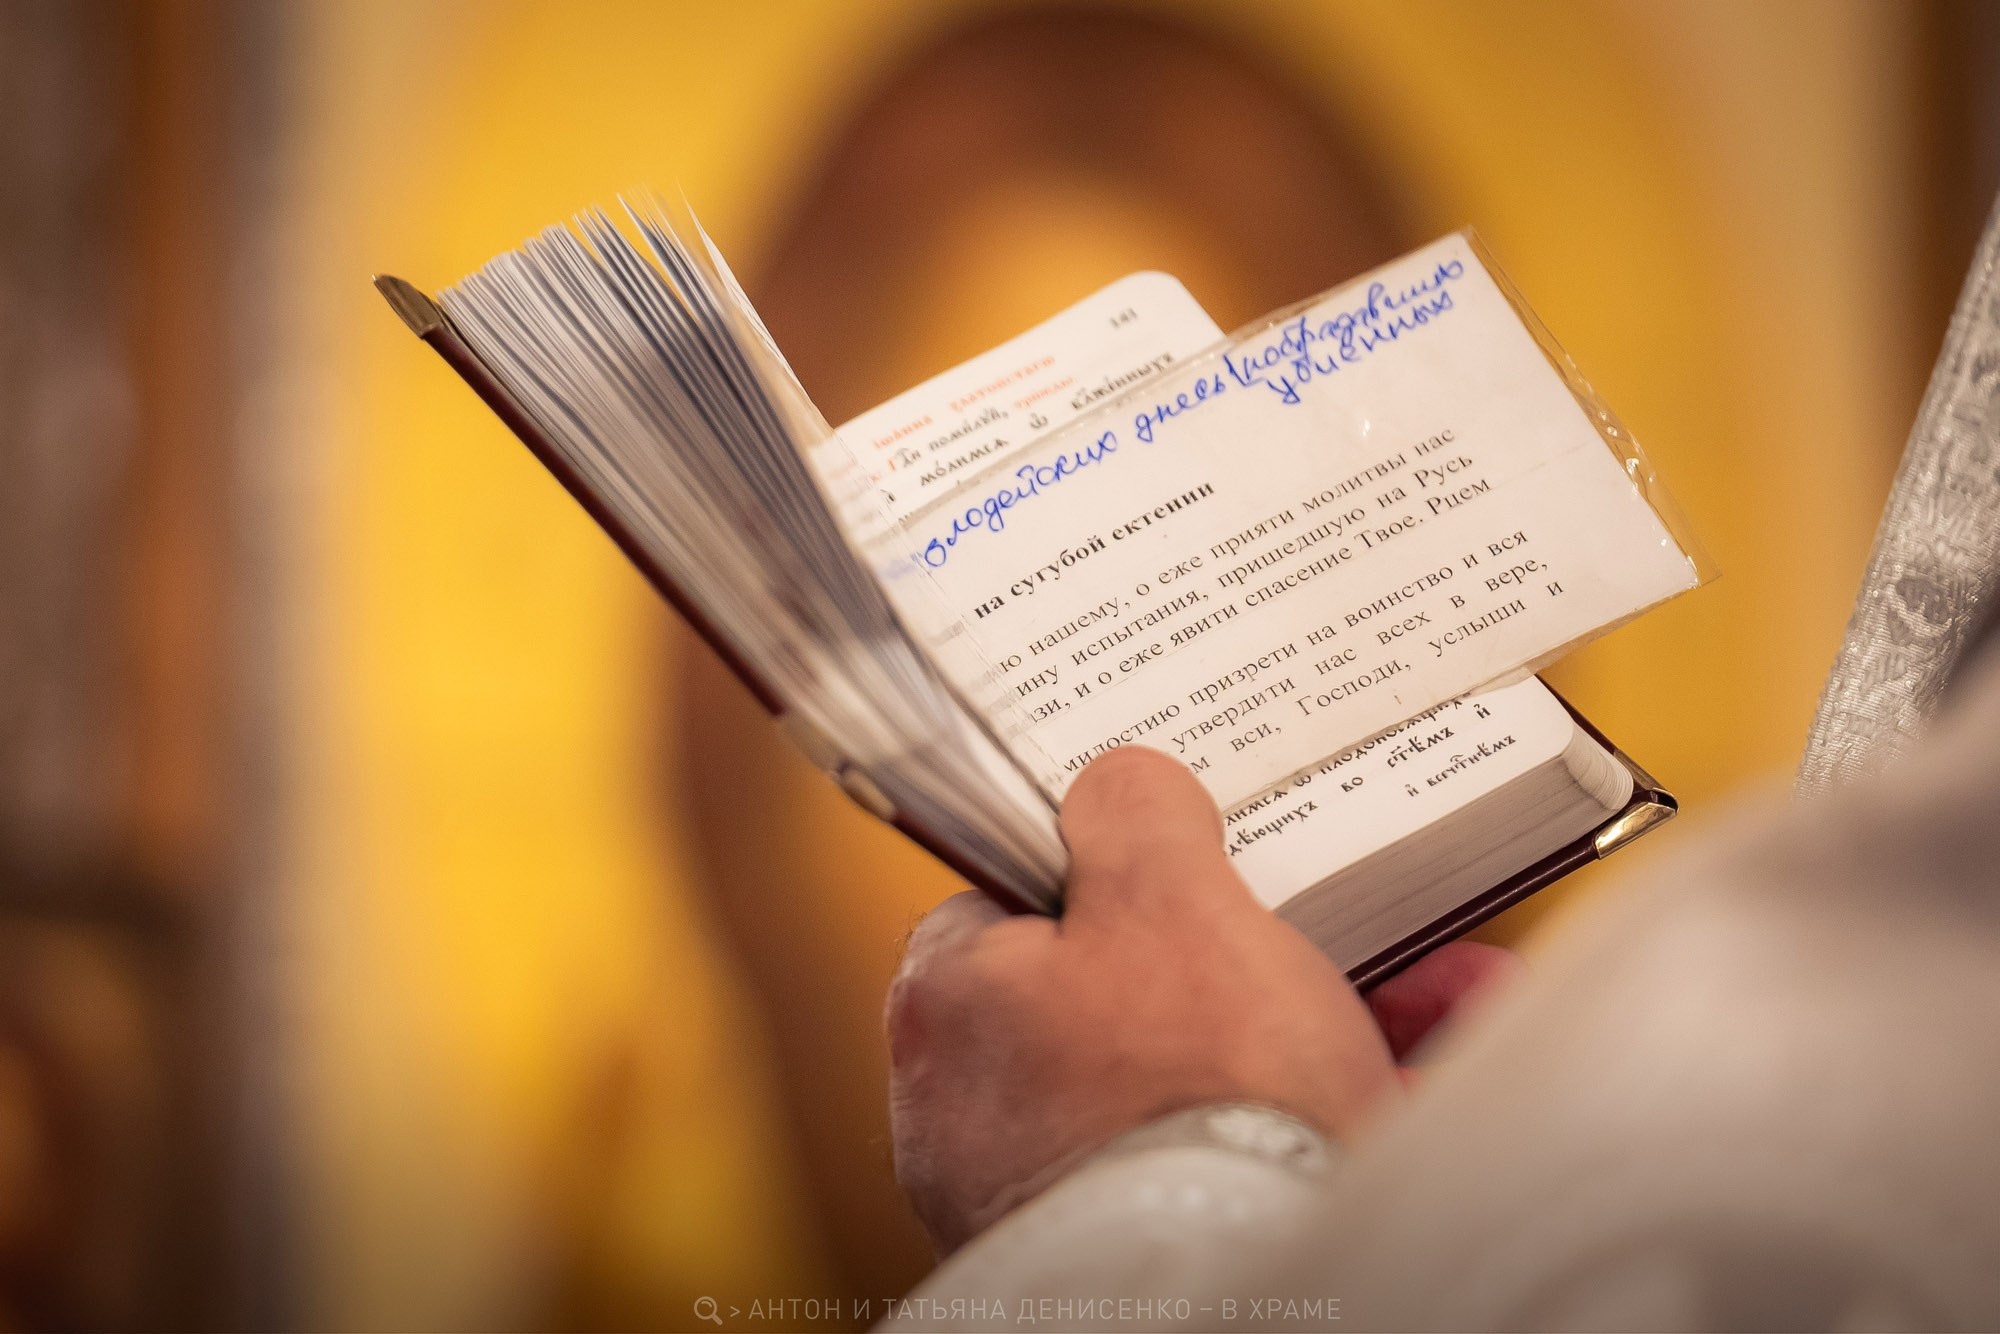 141
їѡанна златоустагѡ
помилꙋй,
молимсѧ ѡ҆ блаженныхъ
злодейских днесь пострадавших
убиенных
на сугубой ектении
ю нашему, о еже прияти молитвы нас
ину испытания, пришедшую на Русь
зи, и о еже явити спасение Твое. Рцем
милостию призрети на воинство и вся
утвердити нас всех в вере,
м вси, Господи, услыши и
лимсѧ ѡ҆ плодоносѧщихъ
дѣющихъ во ст҃ѣмъ и҆
и҆ всечⷭ҇тнѣмъ
> АНТОН И ТАТЬЯНА ДЕНИСЕНКО – В ХРАМЕ